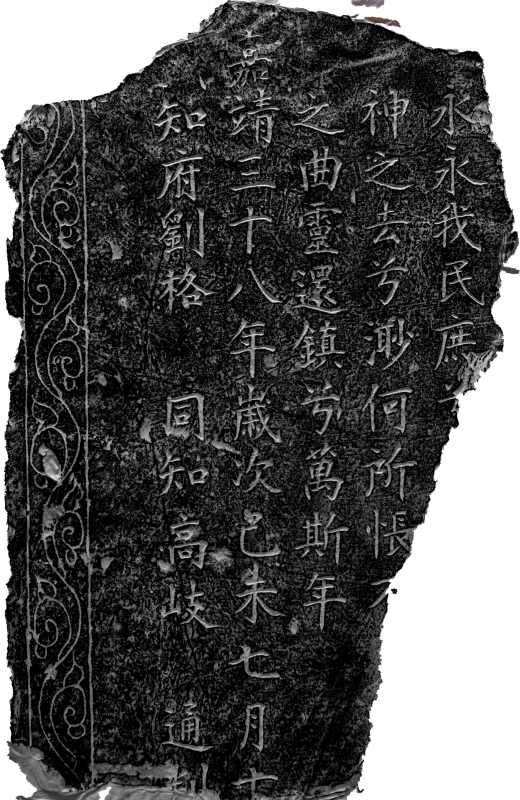 永永我民庶
神之去兮渺何所悵
之曲靈還鎮兮萬斯年
嘉靖三十八年歲次己未七月十
知府劉格 同知高岐 通判